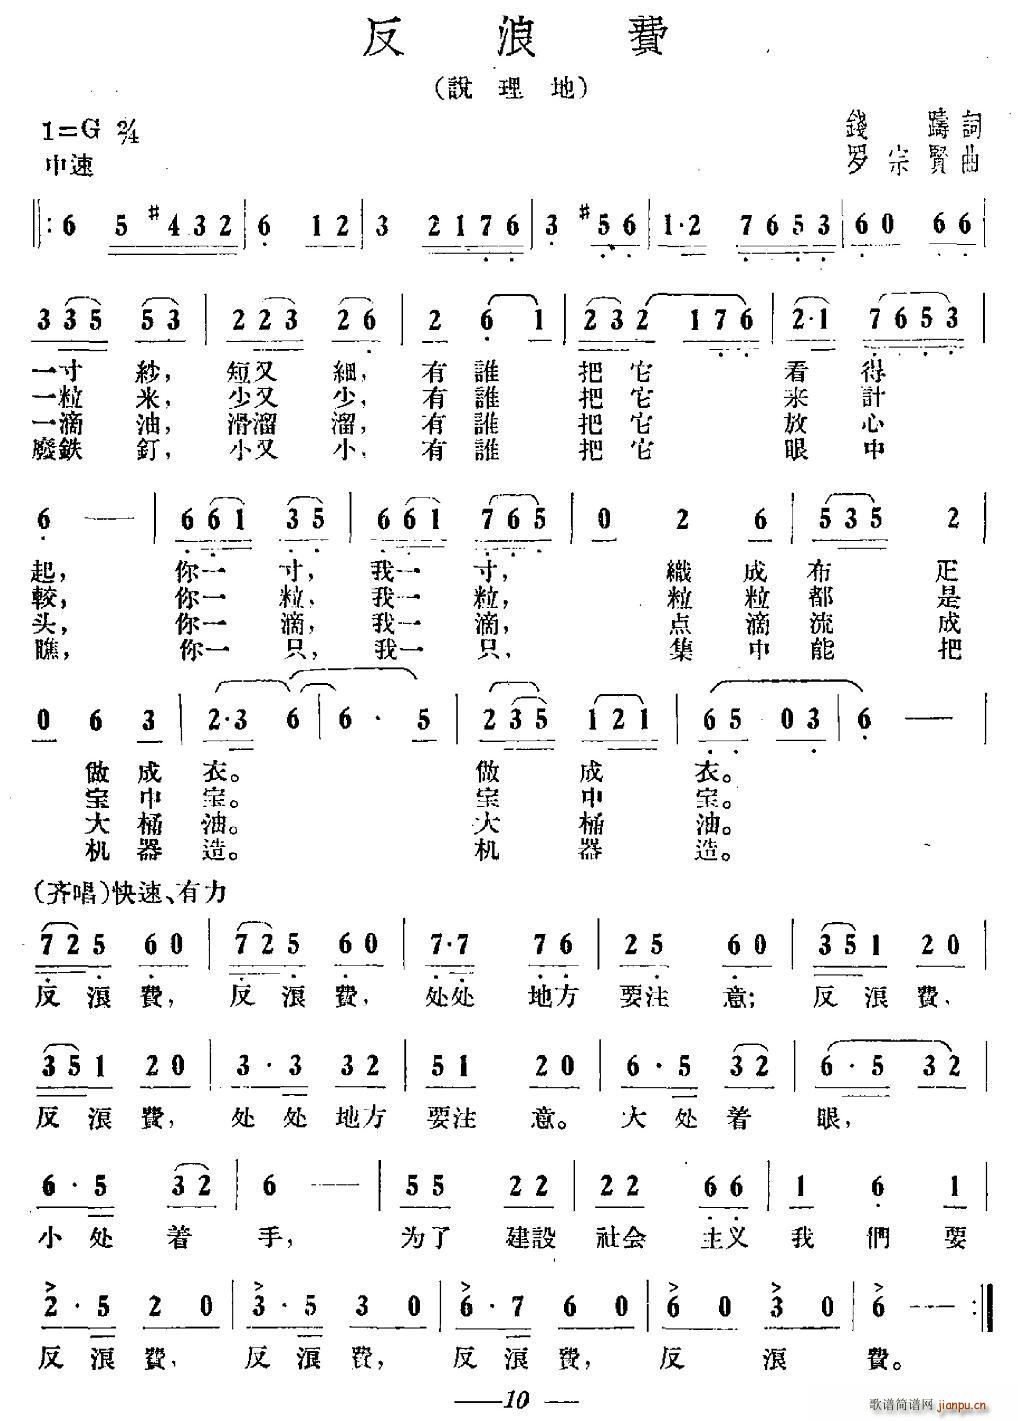 反浪費
(說理地)
1=G 2/4
錢 疇詞
中速
罗宗賢曲
‖: 6 5 #4 3 2 | 6 1 2 | 3 2 1 7 6 | 3 #5 6 | 1·2 7 6 5 3 | 6 0 6 6 |
3 3 5 5 3 | 2 2 3 2 6 | 2 6 1 | 2 3 2 1 7 6 | 2·1 7 6 5 3 |
一寸紗, 短又細, 有誰 把它 看得
一粒米, 少又少, 有誰 把它 来計
一滴油, 滑溜溜, 有誰 把它 放心
廢鉄釘, 小又小, 有誰 把它 眼中
6 — | 6 6 1 3 5 | 6 6 1 7 6 5 | 0 2 6 | 5 3 5 2 |
起, 你一寸, 我一寸, 織成布疋
較, 你一粒, 我一粒, 粒粒都是
头, 你一滴, 我一滴, 点滴流成
瞧, 你一只, 我一只, 集中能把
0 6 3 | 2·3 6 | 6 · 5 | 2 3 5 1 2 1 | 6 5 0 3 | 6 — |
做成衣。 做成衣。
宝中宝。 宝中宝。
大桶油。 大桶油。
机器造。 机器造。
(齐唱)快速、有力
7 2 5 6 0 | 7 2 5 6 0 | 7·7 7 6 | 2 5 6 0 | 3 5 1 2 0 |
反浪費, 反浪費, 处处地方要注意; 反浪費,
3 5 1 2 0 | 3 · 3 3 2 | 5 1 2 0 | 6 · 5 3 2 | 6 · 5 3 2 |
反浪費, 处处地方要注意。大处着眼,
6 · 5 3 2 | 6 — | 5 5 2 2 | 2 2 6 6 | 1 6 1 |
小处着手, 为了建設社会主义我們要
2 · 5 2 0 | 3 · 5 3 0 | 6 · 7 6 0 | 6 0 3 0 | 6 — :‖
反浪費, 反浪費, 反浪費, 反浪費。
— 10 —
歌谱简谱网 jianpu.cn